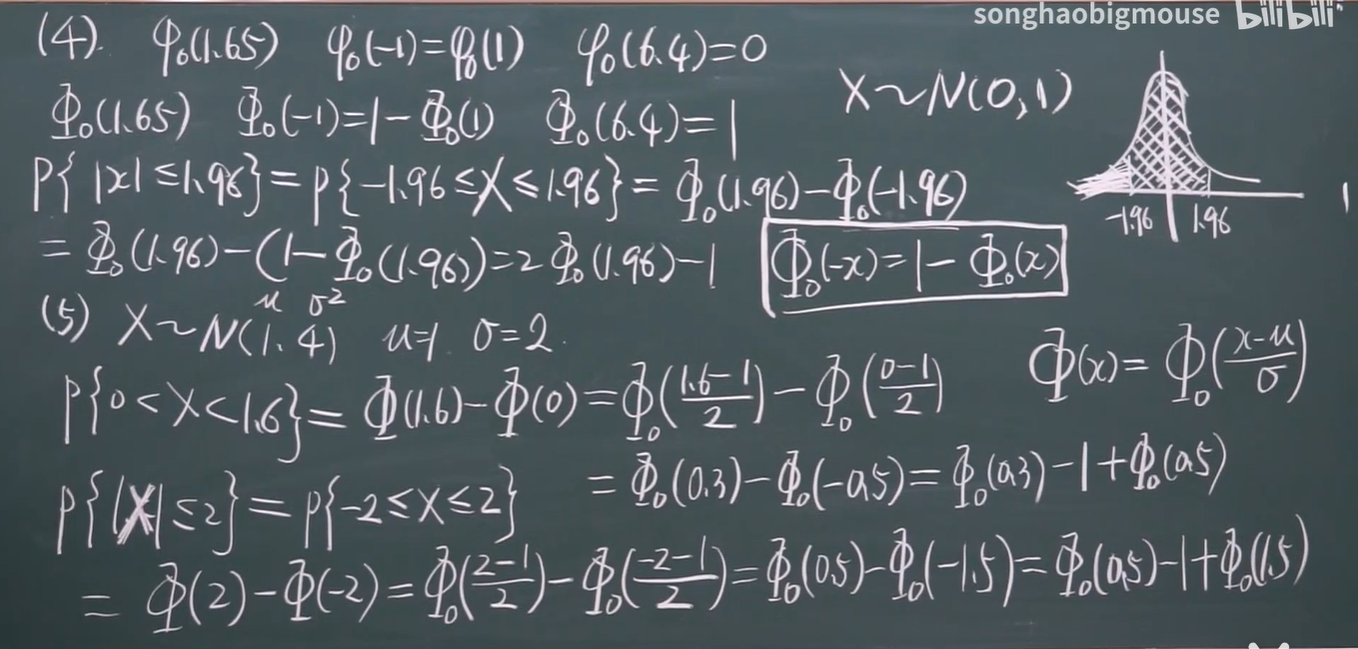 songhaobigmouse bilibili
(4). φ₀(1.65) φ₀(-1)=φ₀(1) φ₀(6.4)=0
Φ₀(1.65) Φ₀(-1)=1-Φ₀(1) Φ₀(6.4)=1
X~N(0,1)
-1.96 1.96
P{|x|≤1.96}=P{-1.96≤X≤1.96}=Φ₀(1.96)-Φ₀(-1.96)
=Φ₀(1.96)-(1-Φ₀(1.96))=2Φ₀(1.96)-1
Φ₀(-x)=1-Φ₀(x)
μ σ²
(5) X~N(1.4) μ=1 σ=2.
Φ(x)=Φ₀((x-μ)/σ)
P{0<X<1.6}=Φ(1.6)-Φ(0)=Φ₀((1.6-1)/2)-Φ₀((0-1)/2)
=Φ₀(0.3)-Φ₀(-0.5)=Φ₀(0.3)-1+Φ₀(0.5)
P{|X|≤2}=P{-2≤X≤2}
=Φ(2)-Φ(-2)=Φ₀((2-1)/2)-Φ₀((-2-1)/2)=Φ₀(0.5)-Φ₀(-1.5)=Φ₀(0.5)-1+Φ₀(1.5)